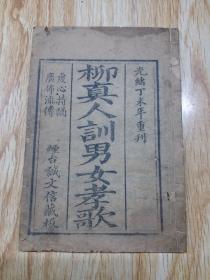 光緒丁未年重刊
柳真人訓男女孝歌
虔心持誦
廣佈流傳
誠文信藏板